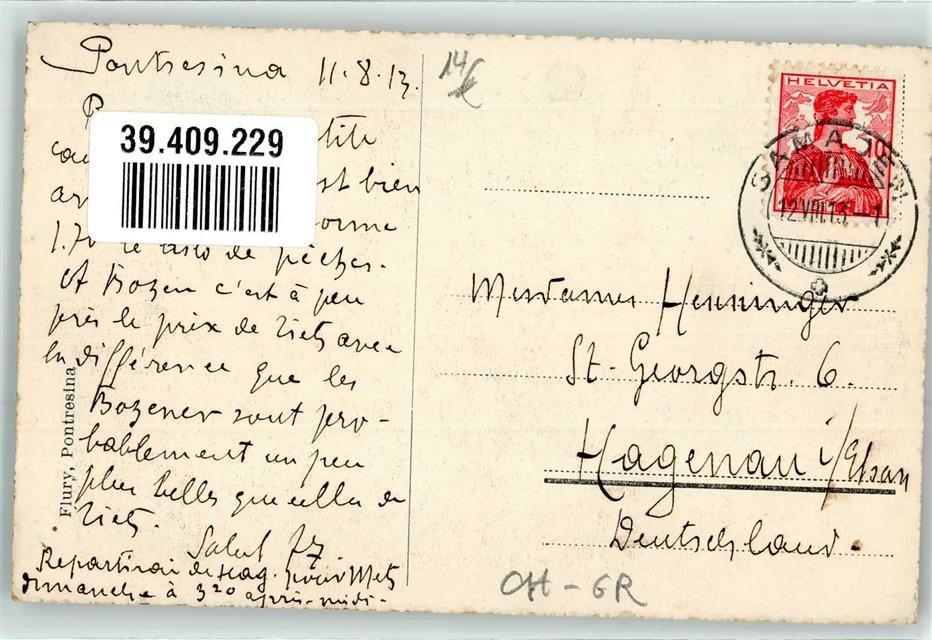 Pontresina 11.8.13.
14
39.409.229
est bien
1.70 le kilo de pêches.
A Bozen c'est à peu
près le prix de Riets avec
la différence que les
Bozener sont pro-
bablement un peu
plus belles que celles de
Riets.
Salut
Repartirai de Hag. pour Metz
dimanche à 3 20 après-midi.
Flury, Pontresina
HELVETIA
10
SAMADEN
12.VIII.13. - 1
Mesdames Henninger
St. Georgstr. 6.
Hagenau i/Elsan
Deutschland.
CH - GR